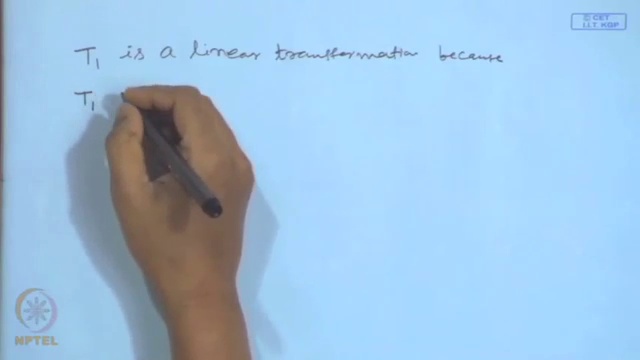 © CET
I.I.T. KGP
T₁ is a linear transformation because
T₁
NPTEL